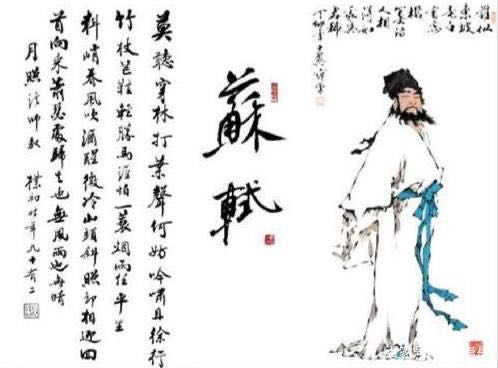 誰似
東坡
老白
首忘
機
蘇軾
莫聽穿林打葉聲何妨吟嘯且徐行
竹杖芒鞋輕勝馬誰怕一蓑烟雨任平生
料峭春風吹酒醒微冷山頭斜照卻相迎回
首向來蕭瑟處歸去也無風雨也無晴
月照法師教
樸初時年九十有二